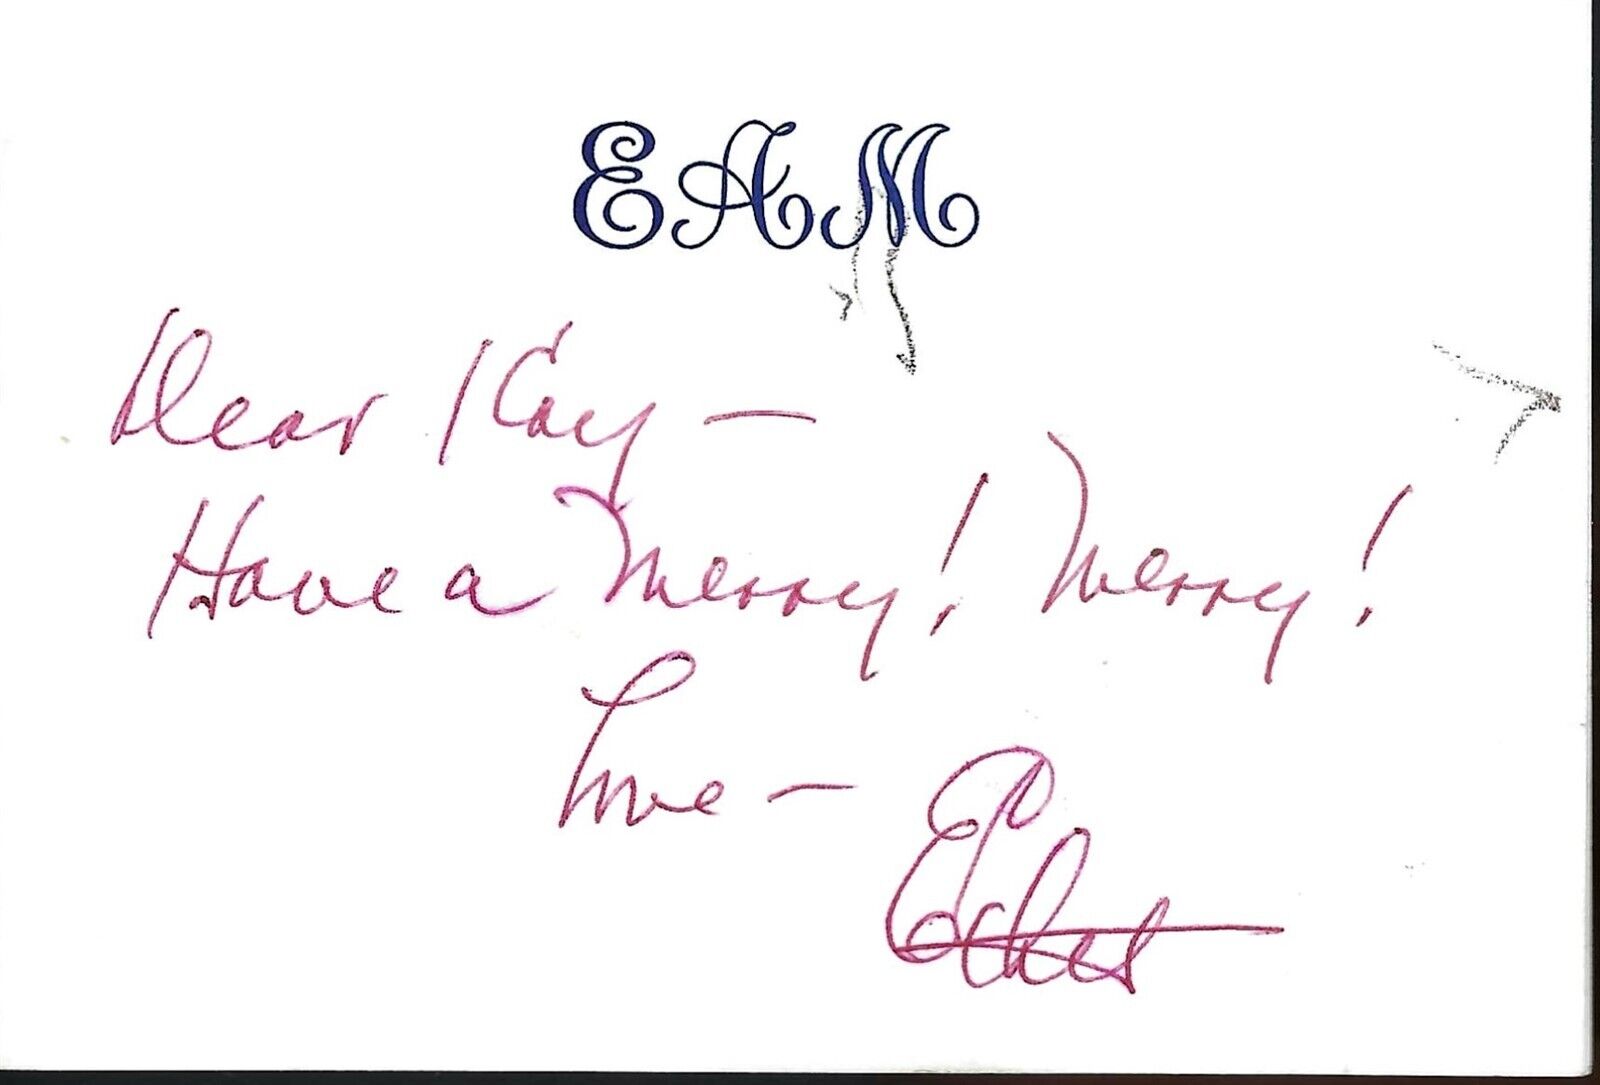 EAM
Dear Kay —
Have a Merry! Merry!
Love —
Ethel